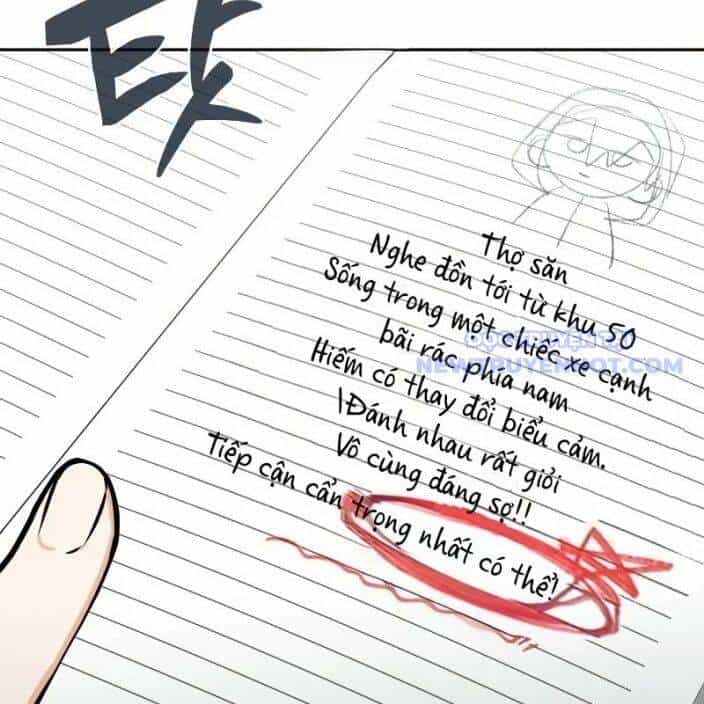 탓
Thợ săn
Nghe đồn tới từ khu 50
Sống trong một chiếc xe cạnh
bãi rác phía nam
Hiếm có thay đổi biểu cảm.
Đánh nhau rất giỏi
Vô cùng đáng sợ!!
Tiếp cận cẩn trọng nhất có thể!
NEWTRUYENHOT.COM